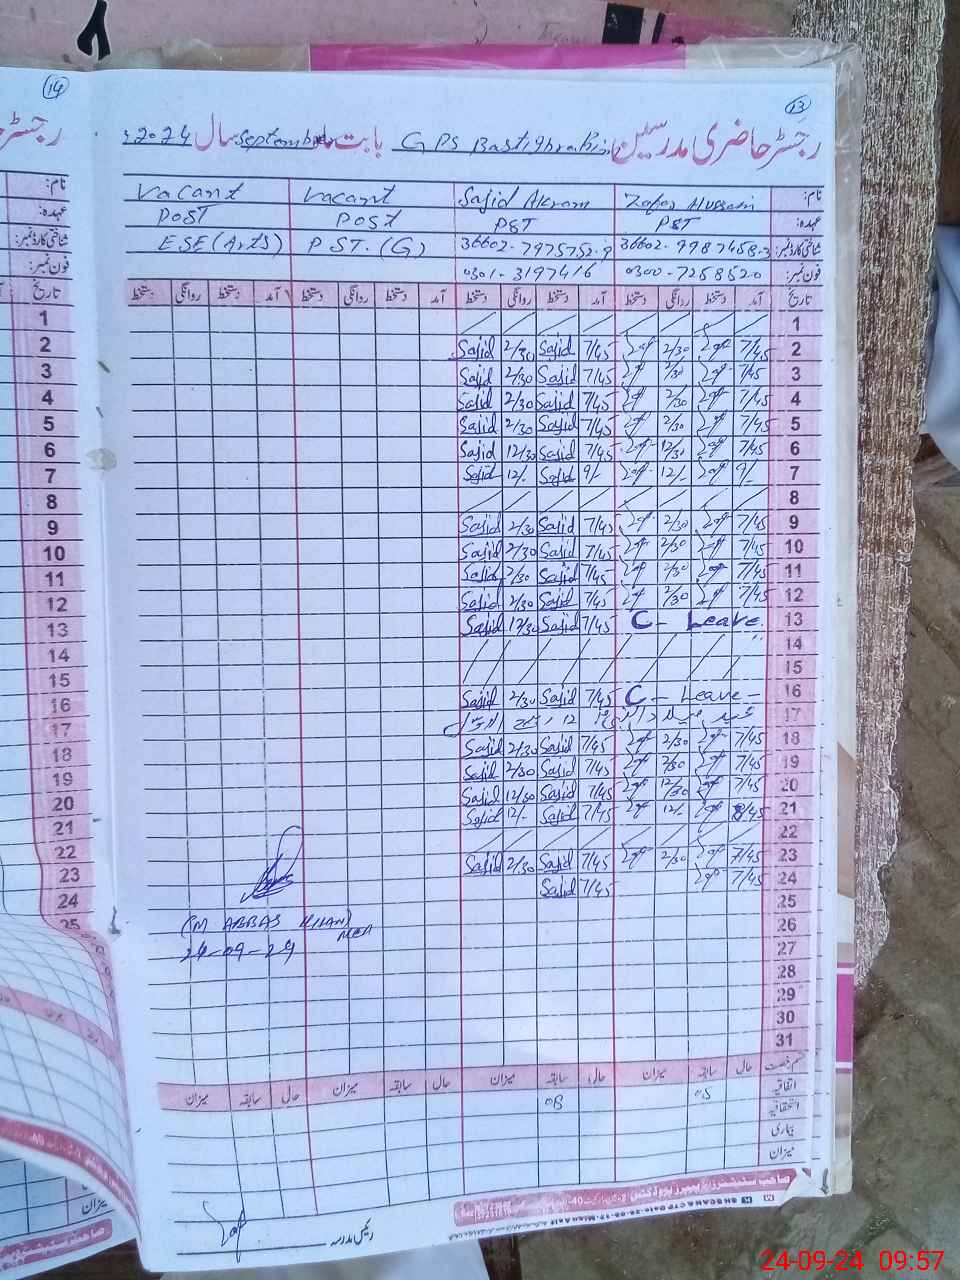 14
13
رجسٹر حاضری مدرسین G PS Basti Ibrahim بابت ماہ September سال 2024
نام: Zafar Hussain Sajid Akram Vacant Vacant
عہدہ: PST PST Post Post
شناختی کارڈ نمبر: 36602-9987458-3 36602-7975752-9 P.ST.(G) ESE (Arts)
فون نمبر: 0300-7258520 0301-3197416
تاریخ آمد دستخط روانگی دستخط آمد دستخط روانگی دستخط آمد دستخط روانگی دستخط آمد دستخط روانگی دستخط
1
2 7/45 2/30 7/45 Sajid 2/30 Sajid
3 7/45 2/30 7/45 Sajid 2/30 Sajid
4 7/45 2/30 7/45 Sajid 2/30 Sajid
5 7/45 2/30 7/45 Sajid 2/30 Sajid
6 7/45 12/30 7/45 Sajid 12/30 Sajid
7 9/- 12/- 9/- Sajid 12/- Sajid
8
9 7/45 2/30 7/45 Sajid 2/30 Sajid
10 7/45 2/30 7/45 Sajid 2/30 Sajid
11 7/45 2/30 7/45 Sajid 2/30 Sajid
12 7/45 2/30 7/45 Sajid 2/30 Sajid
13 C - Leave. 7/45 Sajid 12/30 Sajid
14
15
16 C - Leave - 7/45 Sajid 2/30 Sajid
17 عید میلاد النبی 12 ربیع الاول
18 7/45 2/30 7/45 Sajid 2/30 Sajid
19 7/45 2/30 7/45 Sajid 2/30 Sajid
20 7/45 12/30 7/45 Sajid 12/30 Sajid
21 8/45 12/- 7/45 Sajid 12/- Sajid
22
23 7/45 2/30 7/45 Sajid 2/30 Sajid
24 7/45 7/45 Sajid
25
(M ABBAS KHAN)
MEA
26
24-09-24
27
28
29
30
31
قسم رخصت حال سابقہ میزان حال سابقہ میزان حال سابقہ میزان حال سابقہ میزان
اتفاقیہ 05 08
استحقاقیہ
بیماری
میزان
رئیس مدرسہ
24-09-24 09:57